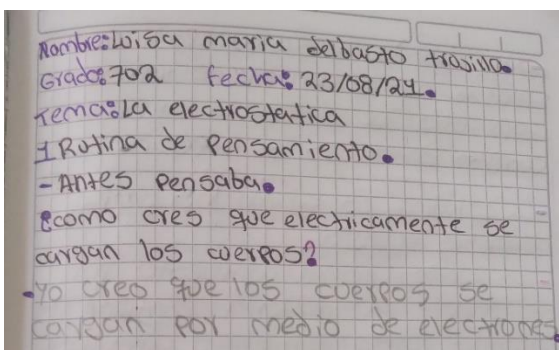 Nombre: Loisa maria delbasto trasilla.
Grado: 702 fecha: 23/08/21.
Tema: La electrostatica
1 Rutina de Pensamiento.
- Antes Pensaba.
¿como cres que electricamente se
cargan los cuerpos?
• yo creo que los cuerpos se
cargan por medio de electrones.